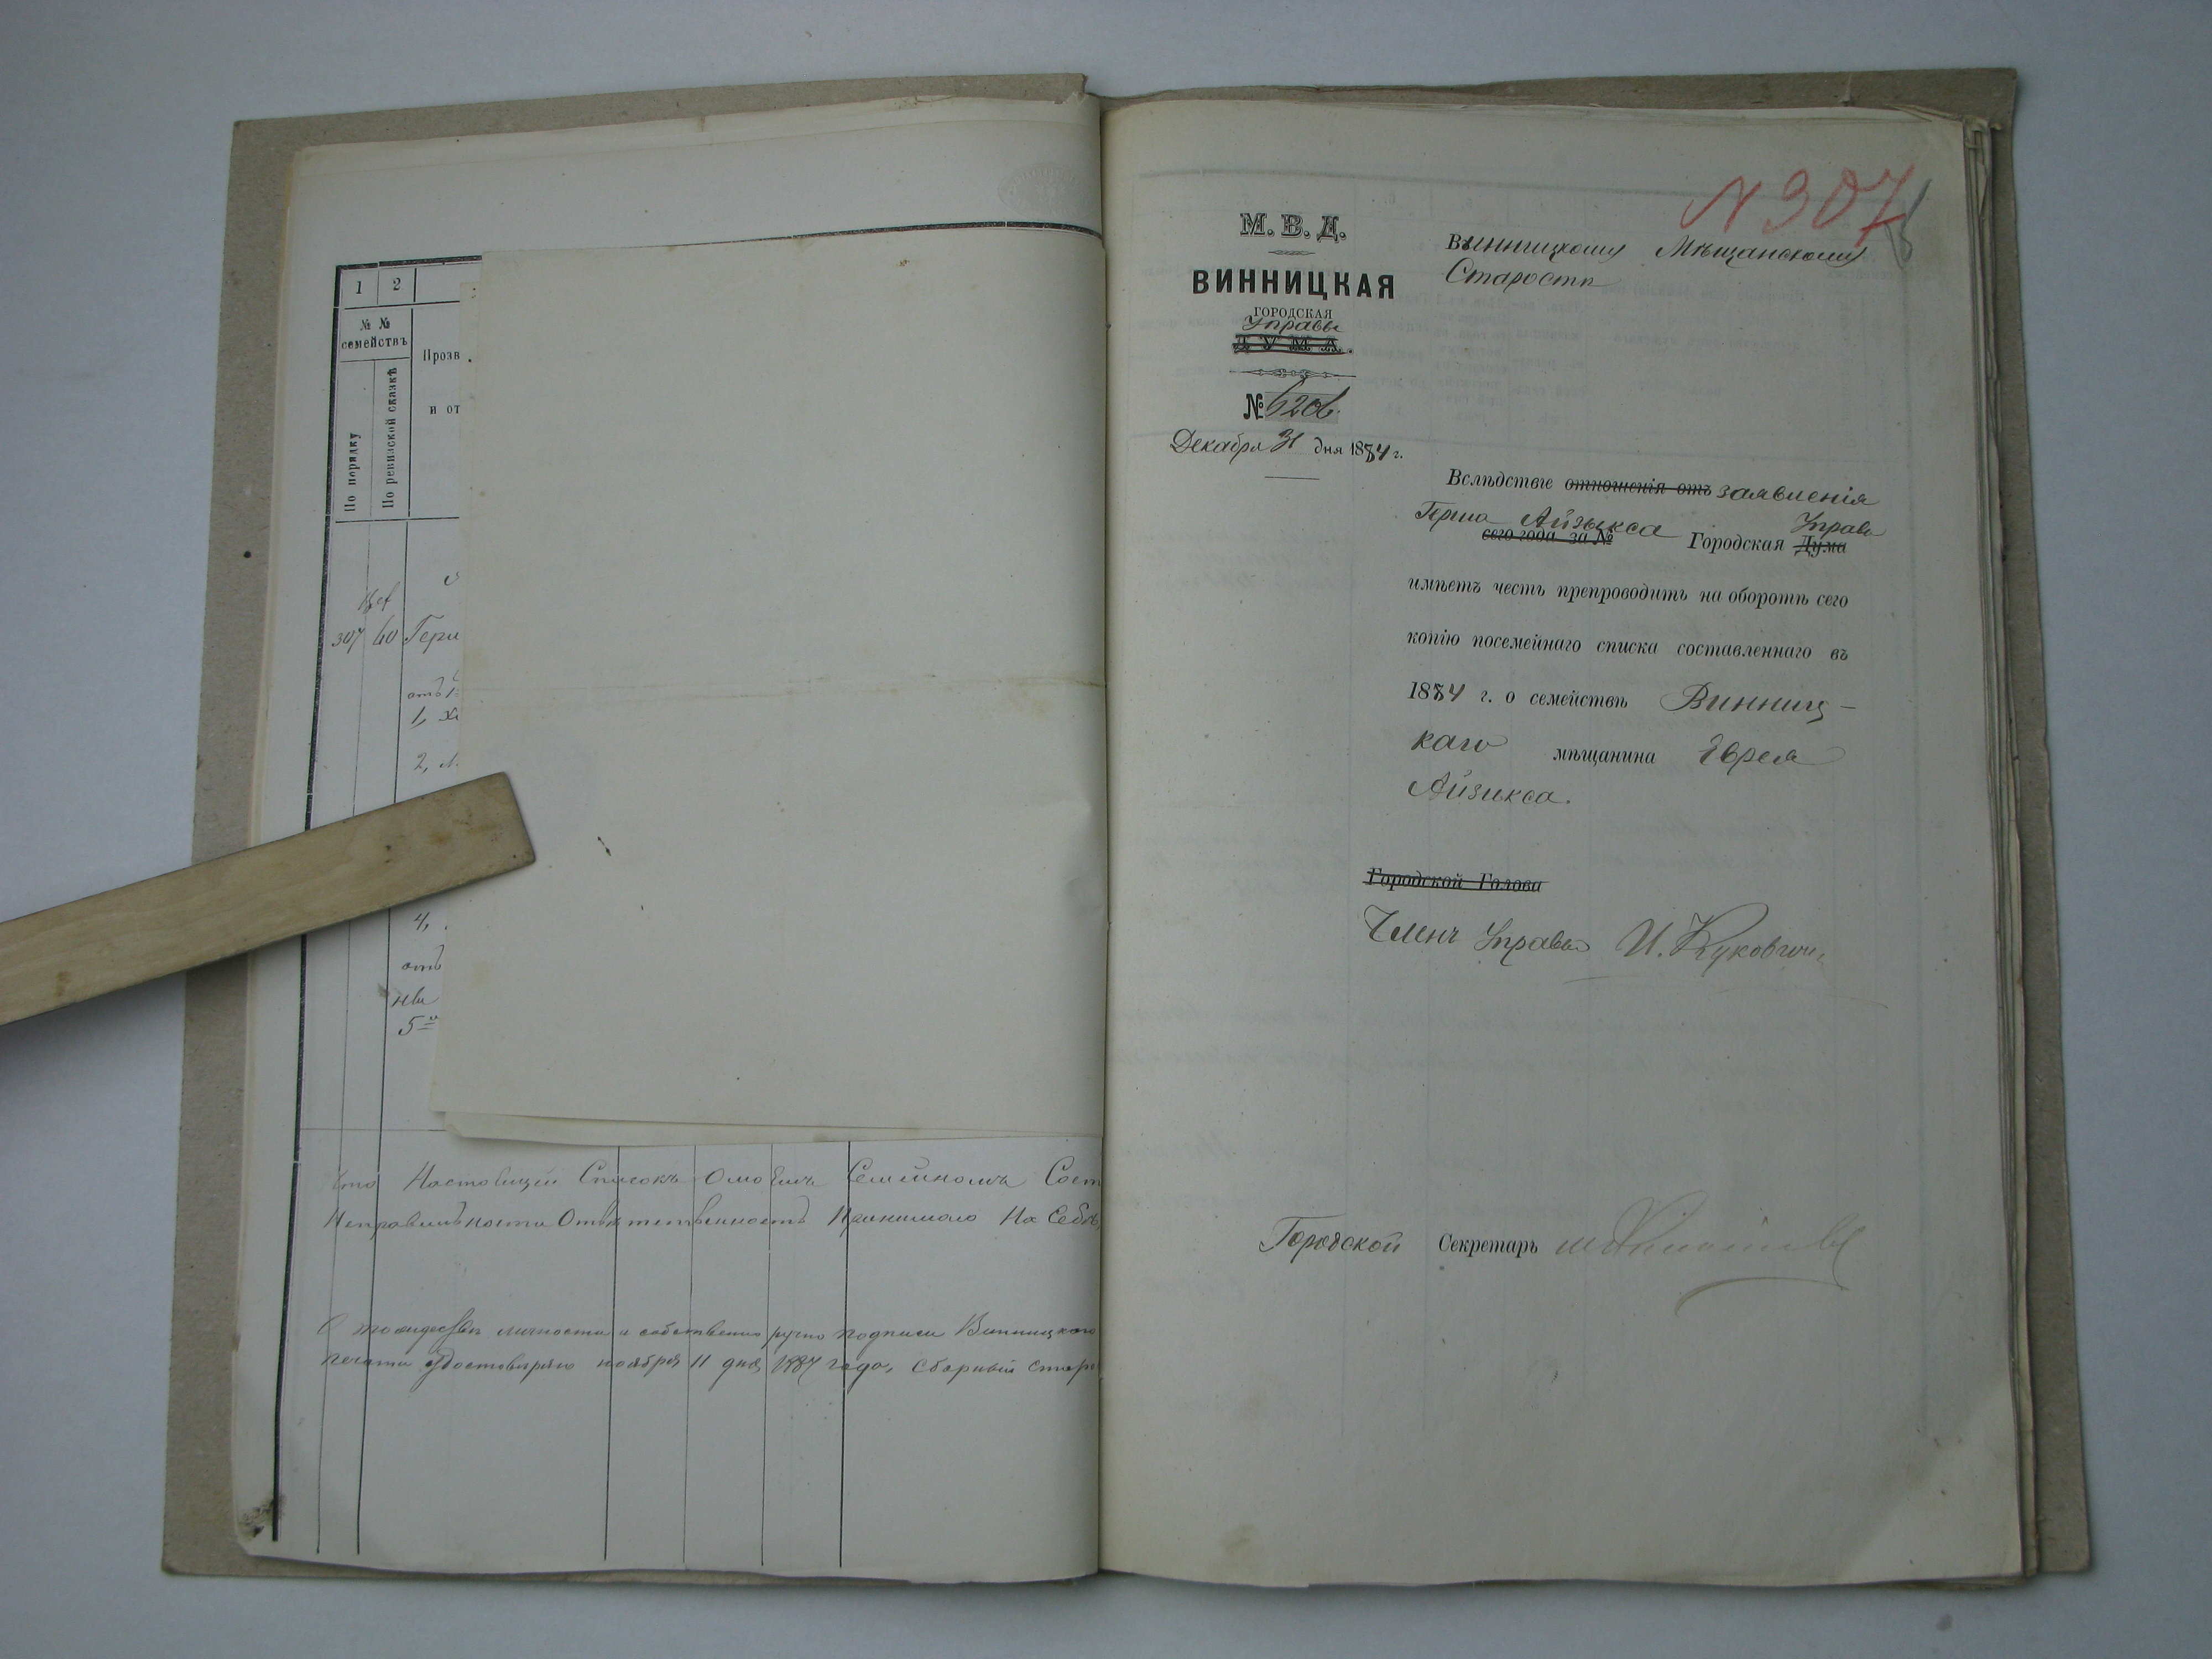 1 2
№ №
семействъ
По порядку
По ревизской сказкѣ
Прозв
и от
307 60 Герш
отъ 1
1, Х
2, М
4,
отъ
5
что Настоящій Списокъ Омоемъ Семейномъ Сост
Неправильности Ответственность Принимаю На Себя
О тождествѣ личности и собственно ручно подписи Винницкаго
печати Удостовѣряю ноября 11 дня 1884 года, Сборный старо
N 307
М. В. Д.
ВИННИЦКАЯ
ГОРОДСКАЯ
Управа
ДУМА.
№ 6206.
Декабря 31 дня 1884 г.
Винницкому Мѣщанскому
Старостѣ
Вслѣдствіе отношенія отъ заявленія
Герша Айзикса Управа
сего года за № Городская Дума
имѣетъ честь препроводить на оборотѣ сего
копію посемейнаго списка составленнаго въ
1884 г. о семействѣ Винниц-
каго мѣщанина Еврея
Айзикса.
Городской Голова
Членъ Управы И.
Городской Секретарь